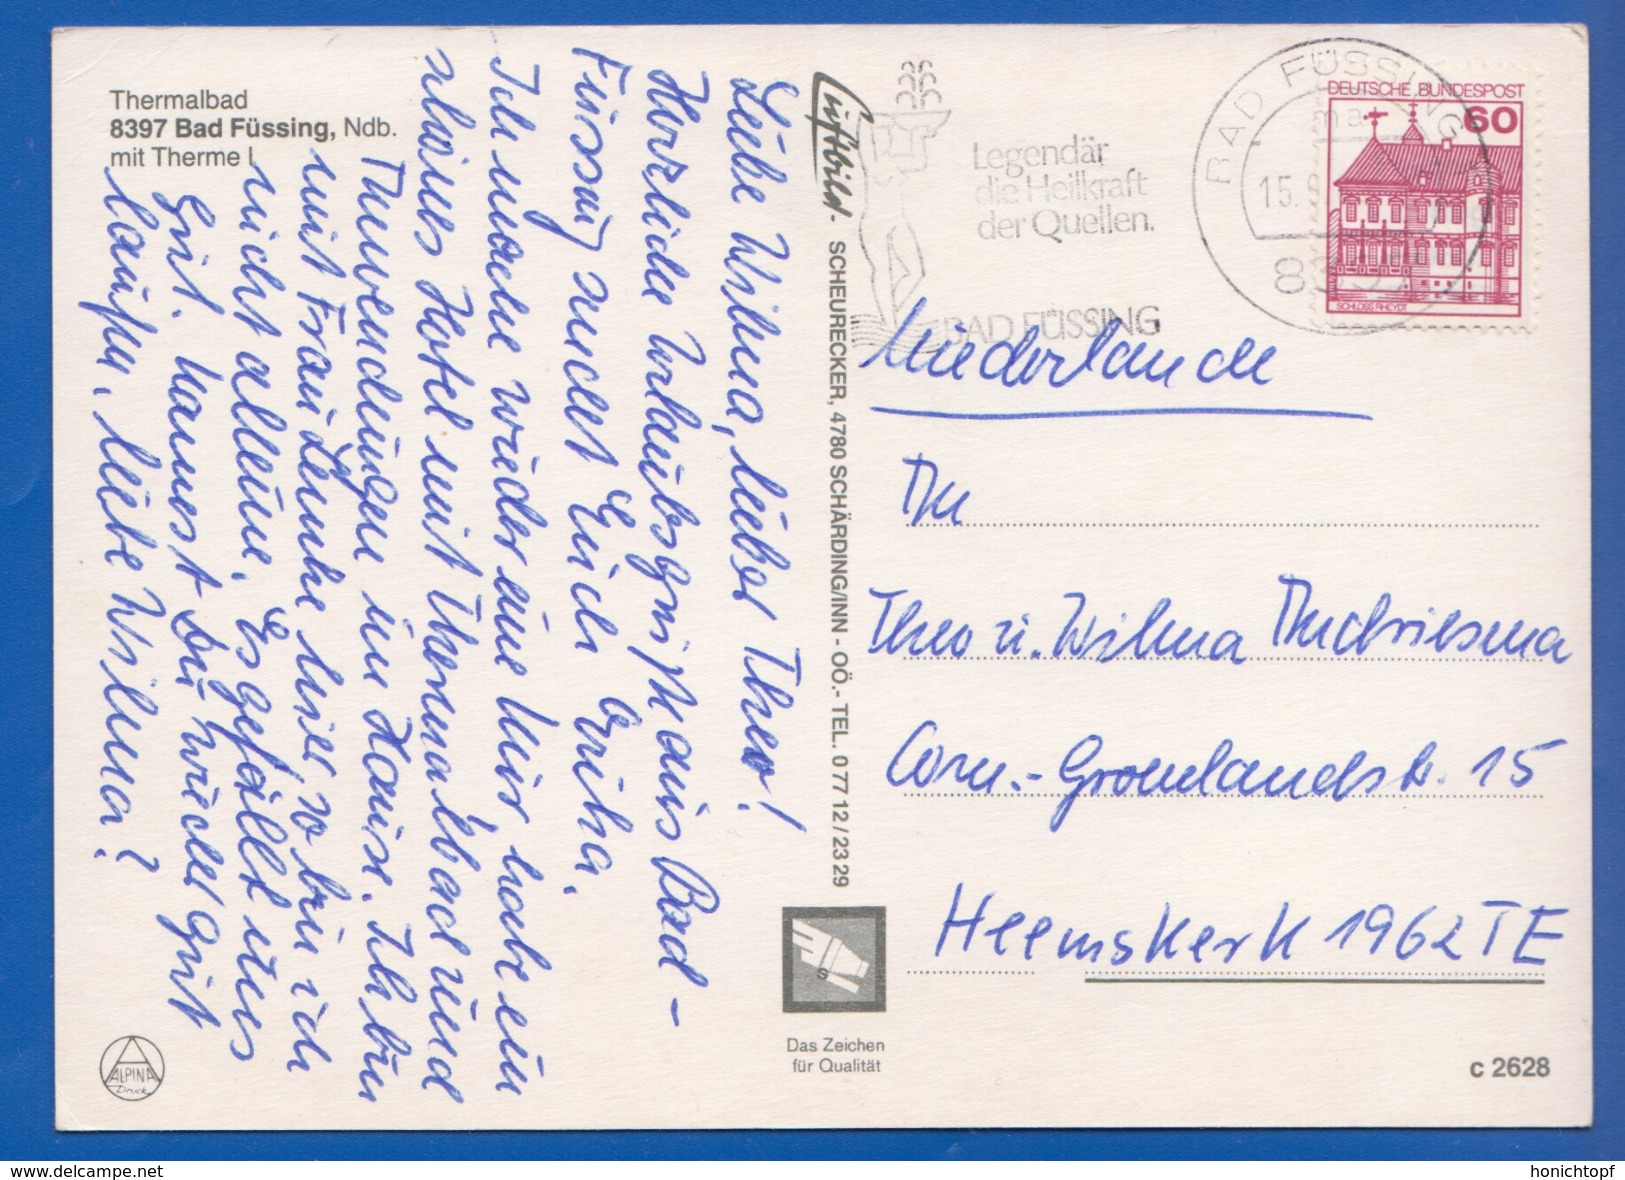 Thermalbad
8397 Bad Füssing, Ndb.
mit Therme I
Liebe Wilma, lieber Theo!
Herzliche Urlaubsgrüße aus Bad-
Füssing sendet Euch Erika.
Ich mache wieder eine Kur, habe ein
kleines Hotel mit Thermalbad und
Anwendungen im Hause. Ich bin
mit Frau Lemke hier, so bin ich
nicht alleine. Es gefällt uns
gut. Kannst Du wieder gut
laufen, liebe Wilma?
Luftbild- SCHEURECKER, 4780 SCHÄRDING/INN - OÖ.- TEL. 0 77 12 / 23 29
Das Zeichen
für Qualität
ALPINA
Druck
Legendär
die Heilkraft
der Quellen.
BAD FÜSSING
BAD FÜSSING
15.
DEUTSCHE BUNDESPOST
60
SCHLOSS RHEYDT
Niederlande
An
Theo u. Wilma
Corn.- Groenlandstr. 15
Heemskerk 1962 TE
c 2628
delcampe.net
honichtopf